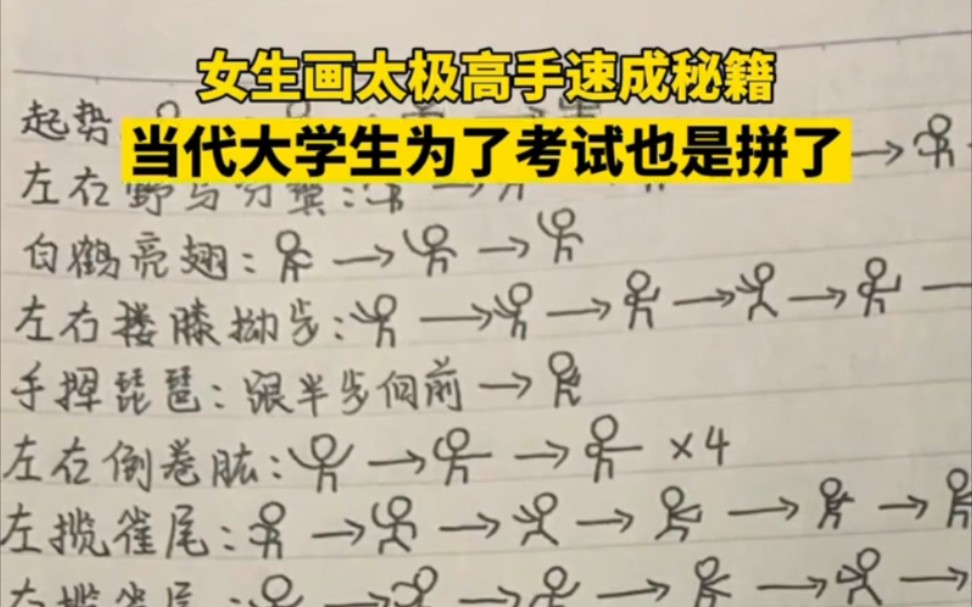 女生画太极高手速成秘籍
当代大学生为了考试也是拼了
起势
左右野马分鬃:
白鹤亮翅:
左右搂膝拗步:
手挥琵琶:跟半步向前
左右倒卷肱:×4
左揽雀尾:
右揽雀尾: